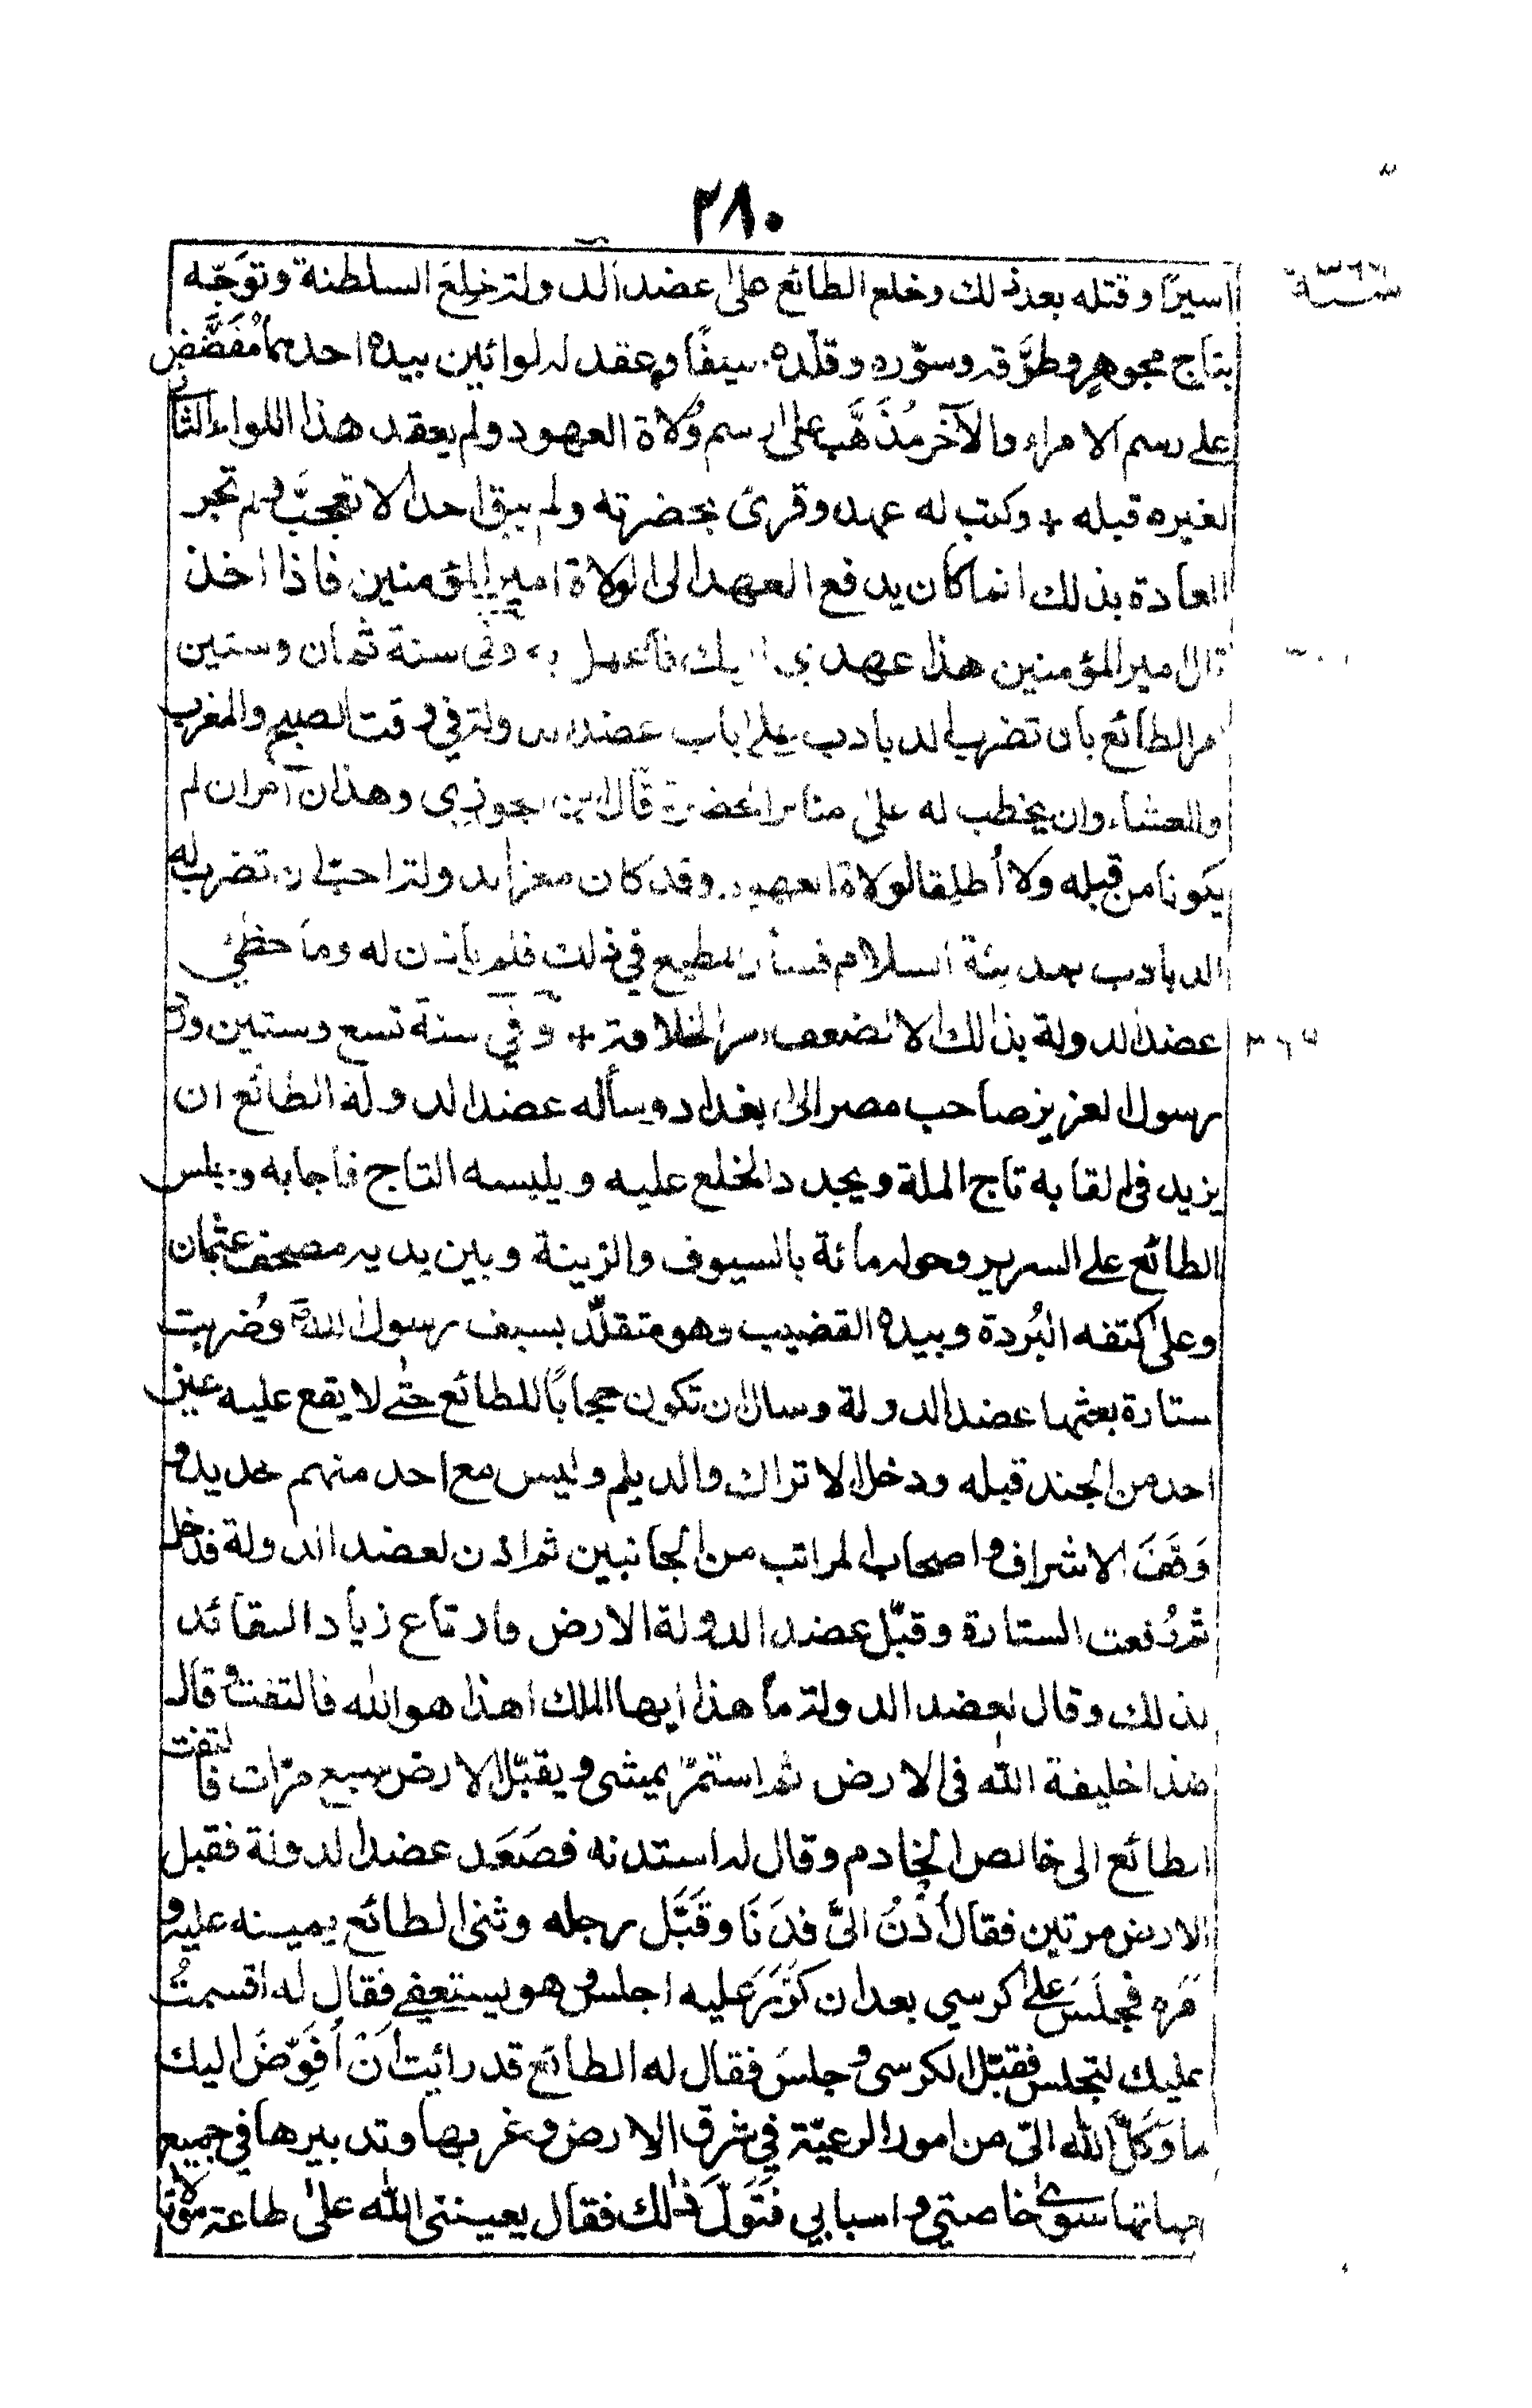 ٢٨٠
اسيرًا وقتله بعد ذلك وخلع الطائع على عضد الدولة خِلَعَ السلطنة وتوَجّه
بتاج مجوهرٍ وطوَّقه وسوّره وقلّده سيفًا وعقد له لوائين بيده احدهما مُفَضَّض
على رسم الامراء والآخر مُذَهَّب على رسم وُلاة العهود ولم يعقد هذا اللواء الثانى
لغيره قبله + وكتب له عهد وقرئ بحضرته ولم يبق احد الا تعجّب ولم تجر
العادة بذلك انما كان يدفع العهد الى الولاة امير المؤمنين فاذا اخذ
قال امير المؤمنين هذا عهدي اليك فاعمل به وفي سنة ثمان وستين
امر الطائع بان تضرب الدبادب على باب عضد الدولة في وقت الصبح والمغرب
والعشاء وان يخطب له على منابر الحضرة قال ابن الجوزي وهذان امران لم
يكونا من قبله ولا أُطلِقا لولاة العهود وقد كان معز الدولة احبّ ان تضرب له
الدبادب بمدينة السلام فسأل المطيع في ذلك فلم يأذن له وما حظي
عضد الدولة بذلك الا لضعف امر الخلافة + وفي سنة تسع وستين ورد
رسول العزيز صاحب مصر الى بغداد وسأله عضد الدولة الطائع ان
يزيد فى القابه تاج الملة ويجدد الخلع عليه ويلبسه التاج فاجابه وجلس
الطائع على السرير وحوله مائة بالسيوف والزينة وبين يديه مصحف عثمان
وعلى كتفه البُردة وبيده القضيب وهو متقلّد بسيف رسول اللهؐ وضُربت
ستارة بعثها عضد الدولة وسال ان تكون حجابًا للطائع حتى لا يقع عليه عين
احد من الجند قبله ودخل الاتراك والديلم وليس مع احد منهم حديد و
وَقَفَ الاشراف واصحاب المراتب من الجانبين ثم اذن لعضد الدولة فدخل
ثم رُفعت الستارة وقبّل عضد الدولة الارض فارتاع زياد القائد
بذلك وقال لعضد الدولة ما هذا ايها الملك اهذا هو الله فالتفت وقال
هذا خليفة الله فى الارض ثم استمرّ يمشى ويقبّل الارض سبع مرّات فالتفت
الطائع الى خالص الخادم وقال له استدنه فصَعَد عضد الدولة فقبل
الارض مرتين فقال أُدْنُ اليَّ فدَنَا وقَبَّل رجله وثنى الطائع يمينه عليه و
امره فجلَسَ على كرسي بعد ان كَرَّرَ عليه اجلس وهو يستعفي فقال له اقسمتُ
عليك لتجلس فقبّل الكرسي وجلسَ فقال له الطائع قد رائيت أَنْ أُفَوِّضَ اليك
ما وَكَّلَ الله الىّ من امور الرعيّة في شرق الارض وغربها وتدبيرها في جميع
جهاتها سوى خاصتي واسبابي فَتَوَلَّ ذلك فقال يعيننى الله على طاعة مولانا
سنة ٣٦٧
٣٦٩